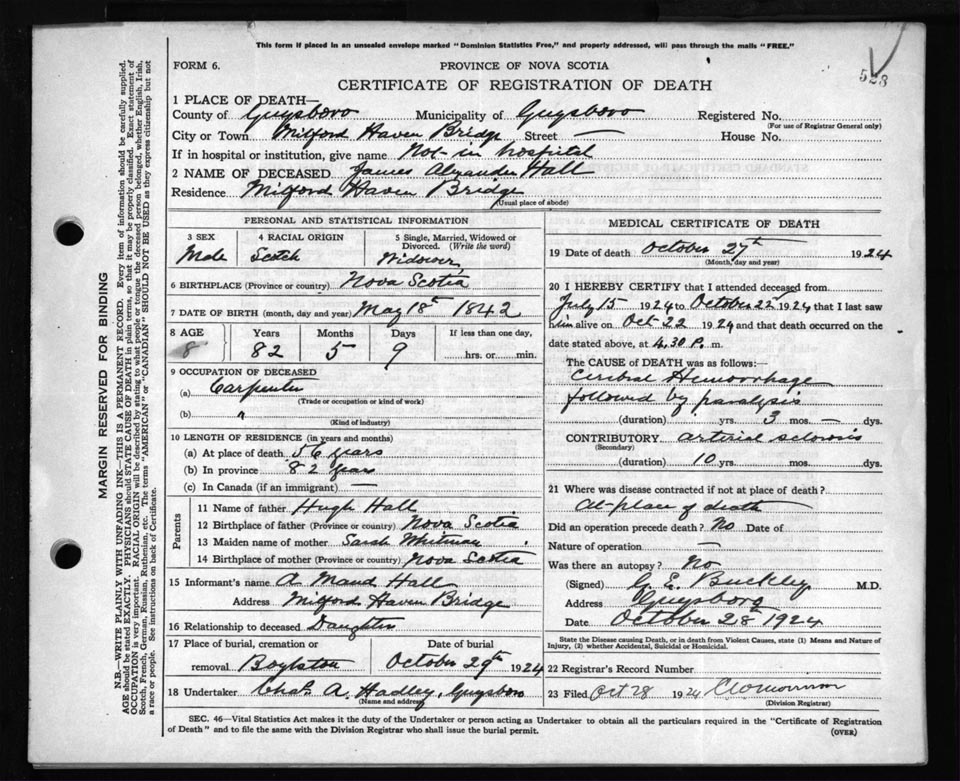 This form if placed in an unsealed envelope marked "Dominion Statistics Free," and properly addressed, will pass through the mails "FREE."
FORM 6.
PROVINCE OF NOVA SCOTIA
523
CERTIFICATE OF REGISTRATION OF DEATH
1 PLACE OF DEATH—
County of Guysboro Municipality of Guysboro Registered No.
(For use of Registrar General only)
City or Town Milford Haven Bridge Street — House No.
If in hospital or institution, give name Not in hospital
2 NAME OF DECEASED James Alexander Hall
Residence Milford Haven Bridge
(Usual place of abode)
PERSONAL AND STATISTICAL INFORMATION
3 SEX
Male
4 RACIAL ORIGIN
Scotch
5 Single, Married, Widowed or
Divorced. (Write the word)
Widower
6 BIRTHPLACE (Province or country) Nova Scotia
7 DATE OF BIRTH (month, day and year) May 18th 1842
8 AGE
8
Years
82
Months
5
Days
9
If less than one day,
hrs. or min.
9 OCCUPATION OF DECEASED
(a) Carpenter
(Trade or occupation or kind of work)
(b) "
(Kind of industry)
10 LENGTH OF RESIDENCE (in years and months)
(a) At place of death 56 years
(b) In province 82 years
(c) In Canada (if an immigrant) —
Parents
11 Name of father Hugh Hall
12 Birthplace of father (Province or country) Nova Scotia
13 Maiden name of mother Sarah Whitman
14 Birthplace of mother (Province or country) Nova Scotia
15 Informant's name A Maud Hall
Address Milford Haven Bridge
16 Relationship to deceased Daughter
17 Place of burial, cremation or
removal Boylston
Date of burial
October 29th 1924
18 Undertaker Chas. A. Hadley, Guysboro
(Name and address)
MEDICAL CERTIFICATE OF DEATH
19 Date of death October 27th 1924
(Month, day and year)
20 I HEREBY CERTIFY that I attended deceased from
July 15 1924 to October 22nd 1924 that I last saw
him alive on Oct 22 1924 and that death occurred on the
date stated above, at 4.30 P. m.
The CAUSE of DEATH was as follows:
Cerebral Hemorrhage
followed by paralysis
(duration) yrs. 3 mos. — dys.
CONTRIBUTORY arterial sclerosis
(Secondary)
(duration) 10 yrs. mos. dys.
21 Where was disease contracted if not at place of death?
At place of death
Did an operation precede death? No Date of
Nature of operation —
Was there an autopsy? No
(Signed) G. E. Buckley M.D.
Address Guysboro
Date October 28 1924
State the Disease causing Death, or in death from Violent Causes, state (1) Means and Nature of
Injury, (2) whether Accidental, Suicidal or Homicidal.
22 Registrar's Record Number
23 Filed Oct 28 1924
(Division Registrar)
SEC. 46—Vital Statistics Act makes it the duty of the Undertaker or person acting as Undertaker to obtain all the particulars required in the "Certificate of Registration
of Death" and to file the same with the Division Registrar who shall issue the burial permit.
(OVER)
MARGIN RESERVED FOR BINDING
N.B.—WRITE PLAINLY WITH UNFADING INK—THIS IS A PERMANENT RECORD. Every item of information should be carefully supplied.
AGE should be stated EXACTLY. PHYSICIANS should STATE CAUSE OF DEATH in plain terms, so that it may be properly classified. Exact statement of
OCCUPATION is very important. RACIAL ORIGIN will be described by stating to what people or tongue the deceased person belonged, whether English, Irish,
Scotch, French, German, Russian, Ruthenian, etc. The terms "AMERICAN" or "CANADIAN" SHOULD NOT BE USED as they express citizenship but not
a race or people. See instructions on back of Certificate.